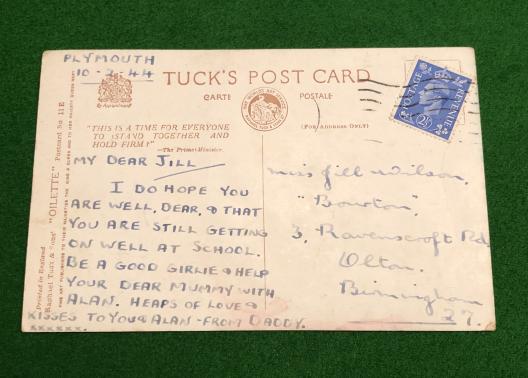 PLYMOUTH
10-7-44
TUCK'S POST CARD
By Appointment
CARTE POSTALE
"THIS IS A TIME FOR EVERYONE
TO STAND TOGETHER AND
HOLD FIRM!"
—The Prime Minister.
(For Address Only)
MY DEAR JILL
I DO HOPE YOU
ARE WELL, DEAR, & THAT
YOU ARE STILL GETTING
ON WELL AT SCHOOL.
BE A GOOD GIRLIE & HELP
YOUR DEAR MUMMY WITH
ALAN. HEAPS OF LOVE &
KISSES TO YOU & ALAN - FROM DADDY.
xxxxxx.
Miss Jill Wilson,
"Bourton",
3, Ravenscroft Rd,
Olton.
Birmingham
27.
POSTAGE REVENUE
2½
Printed in England
Raphael Tuck & Sons' "OILETTE" Postcard No. 11E